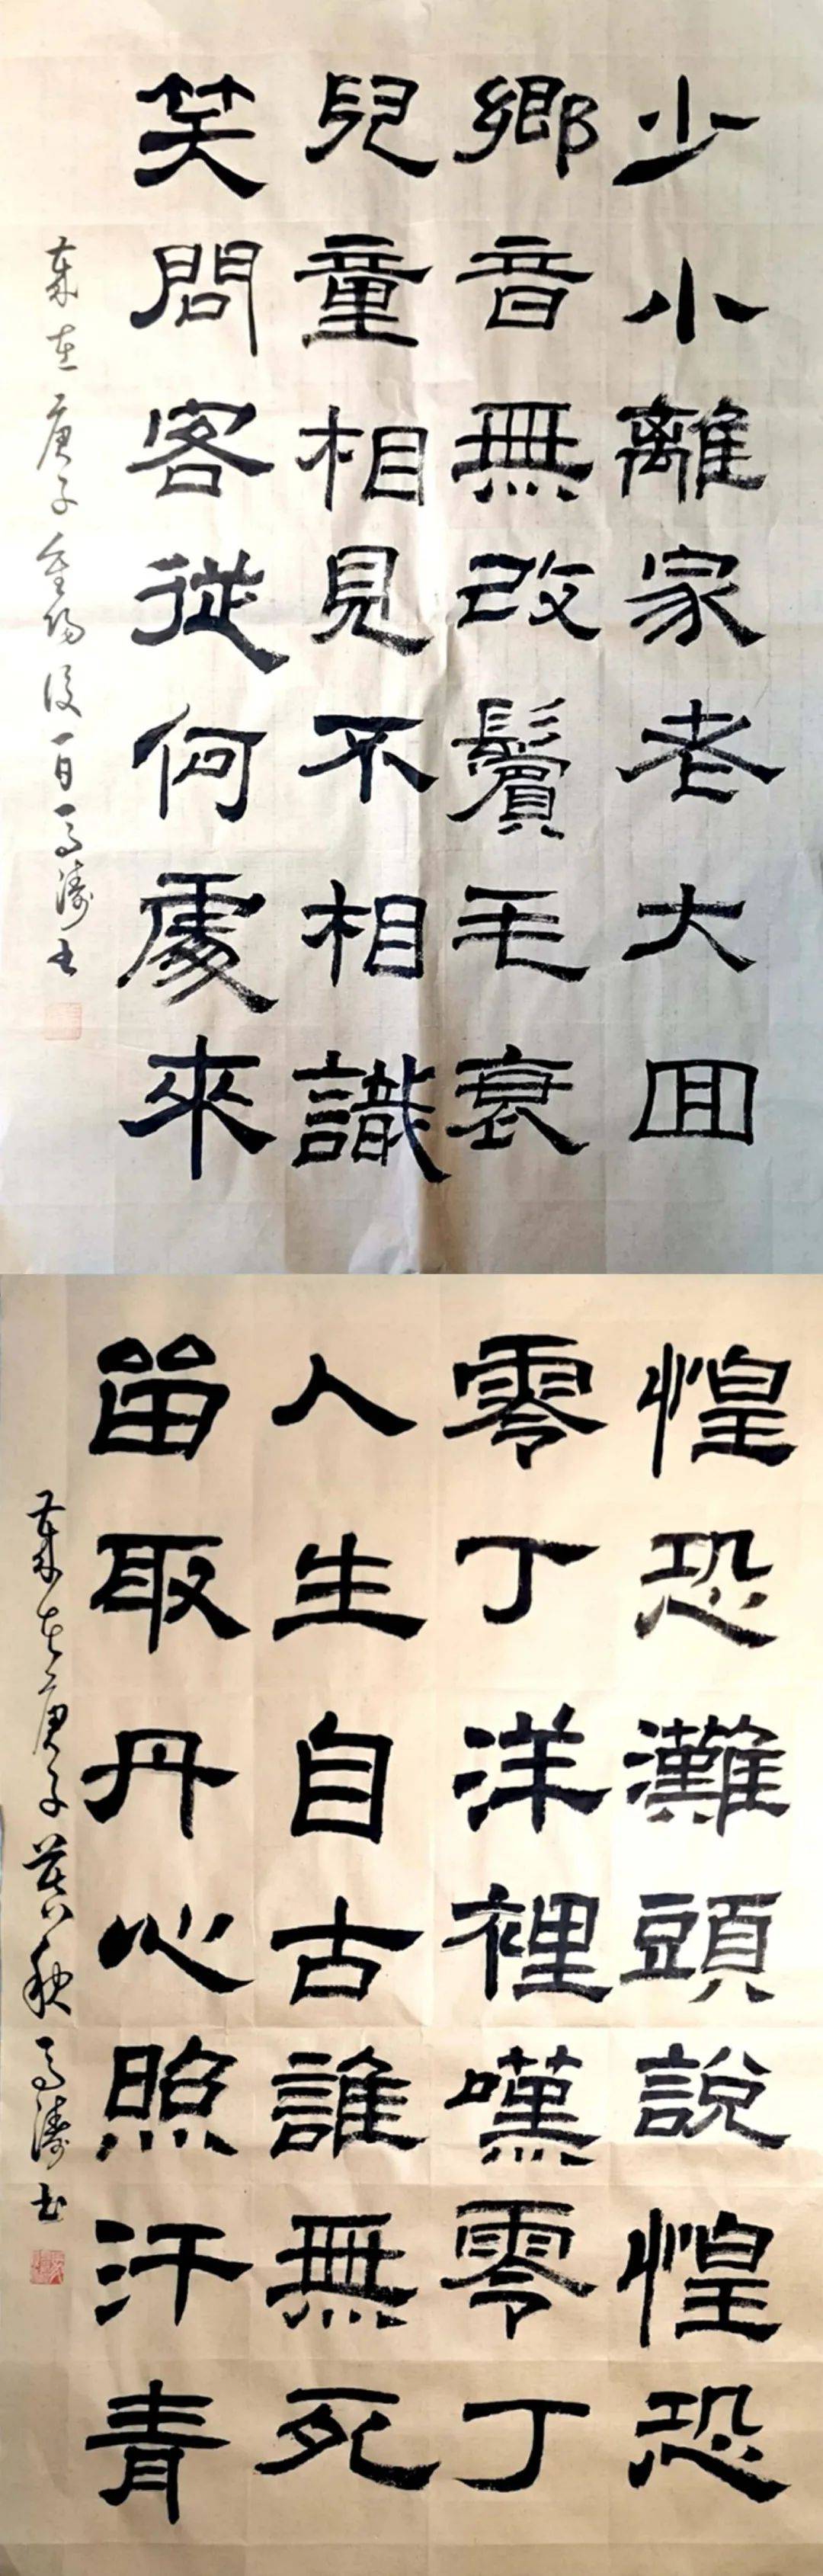 少小離家老大回
鄉音無改鬢毛衰
兒童相見不相識
笑問客從何處來
歲在庚子重陽後一日馬濤書
惶恐灘頭說惶恐
零丁洋裡嘆零丁
人生自古誰無死
留取丹心照汗青
歲在庚子暮秋馬濤書